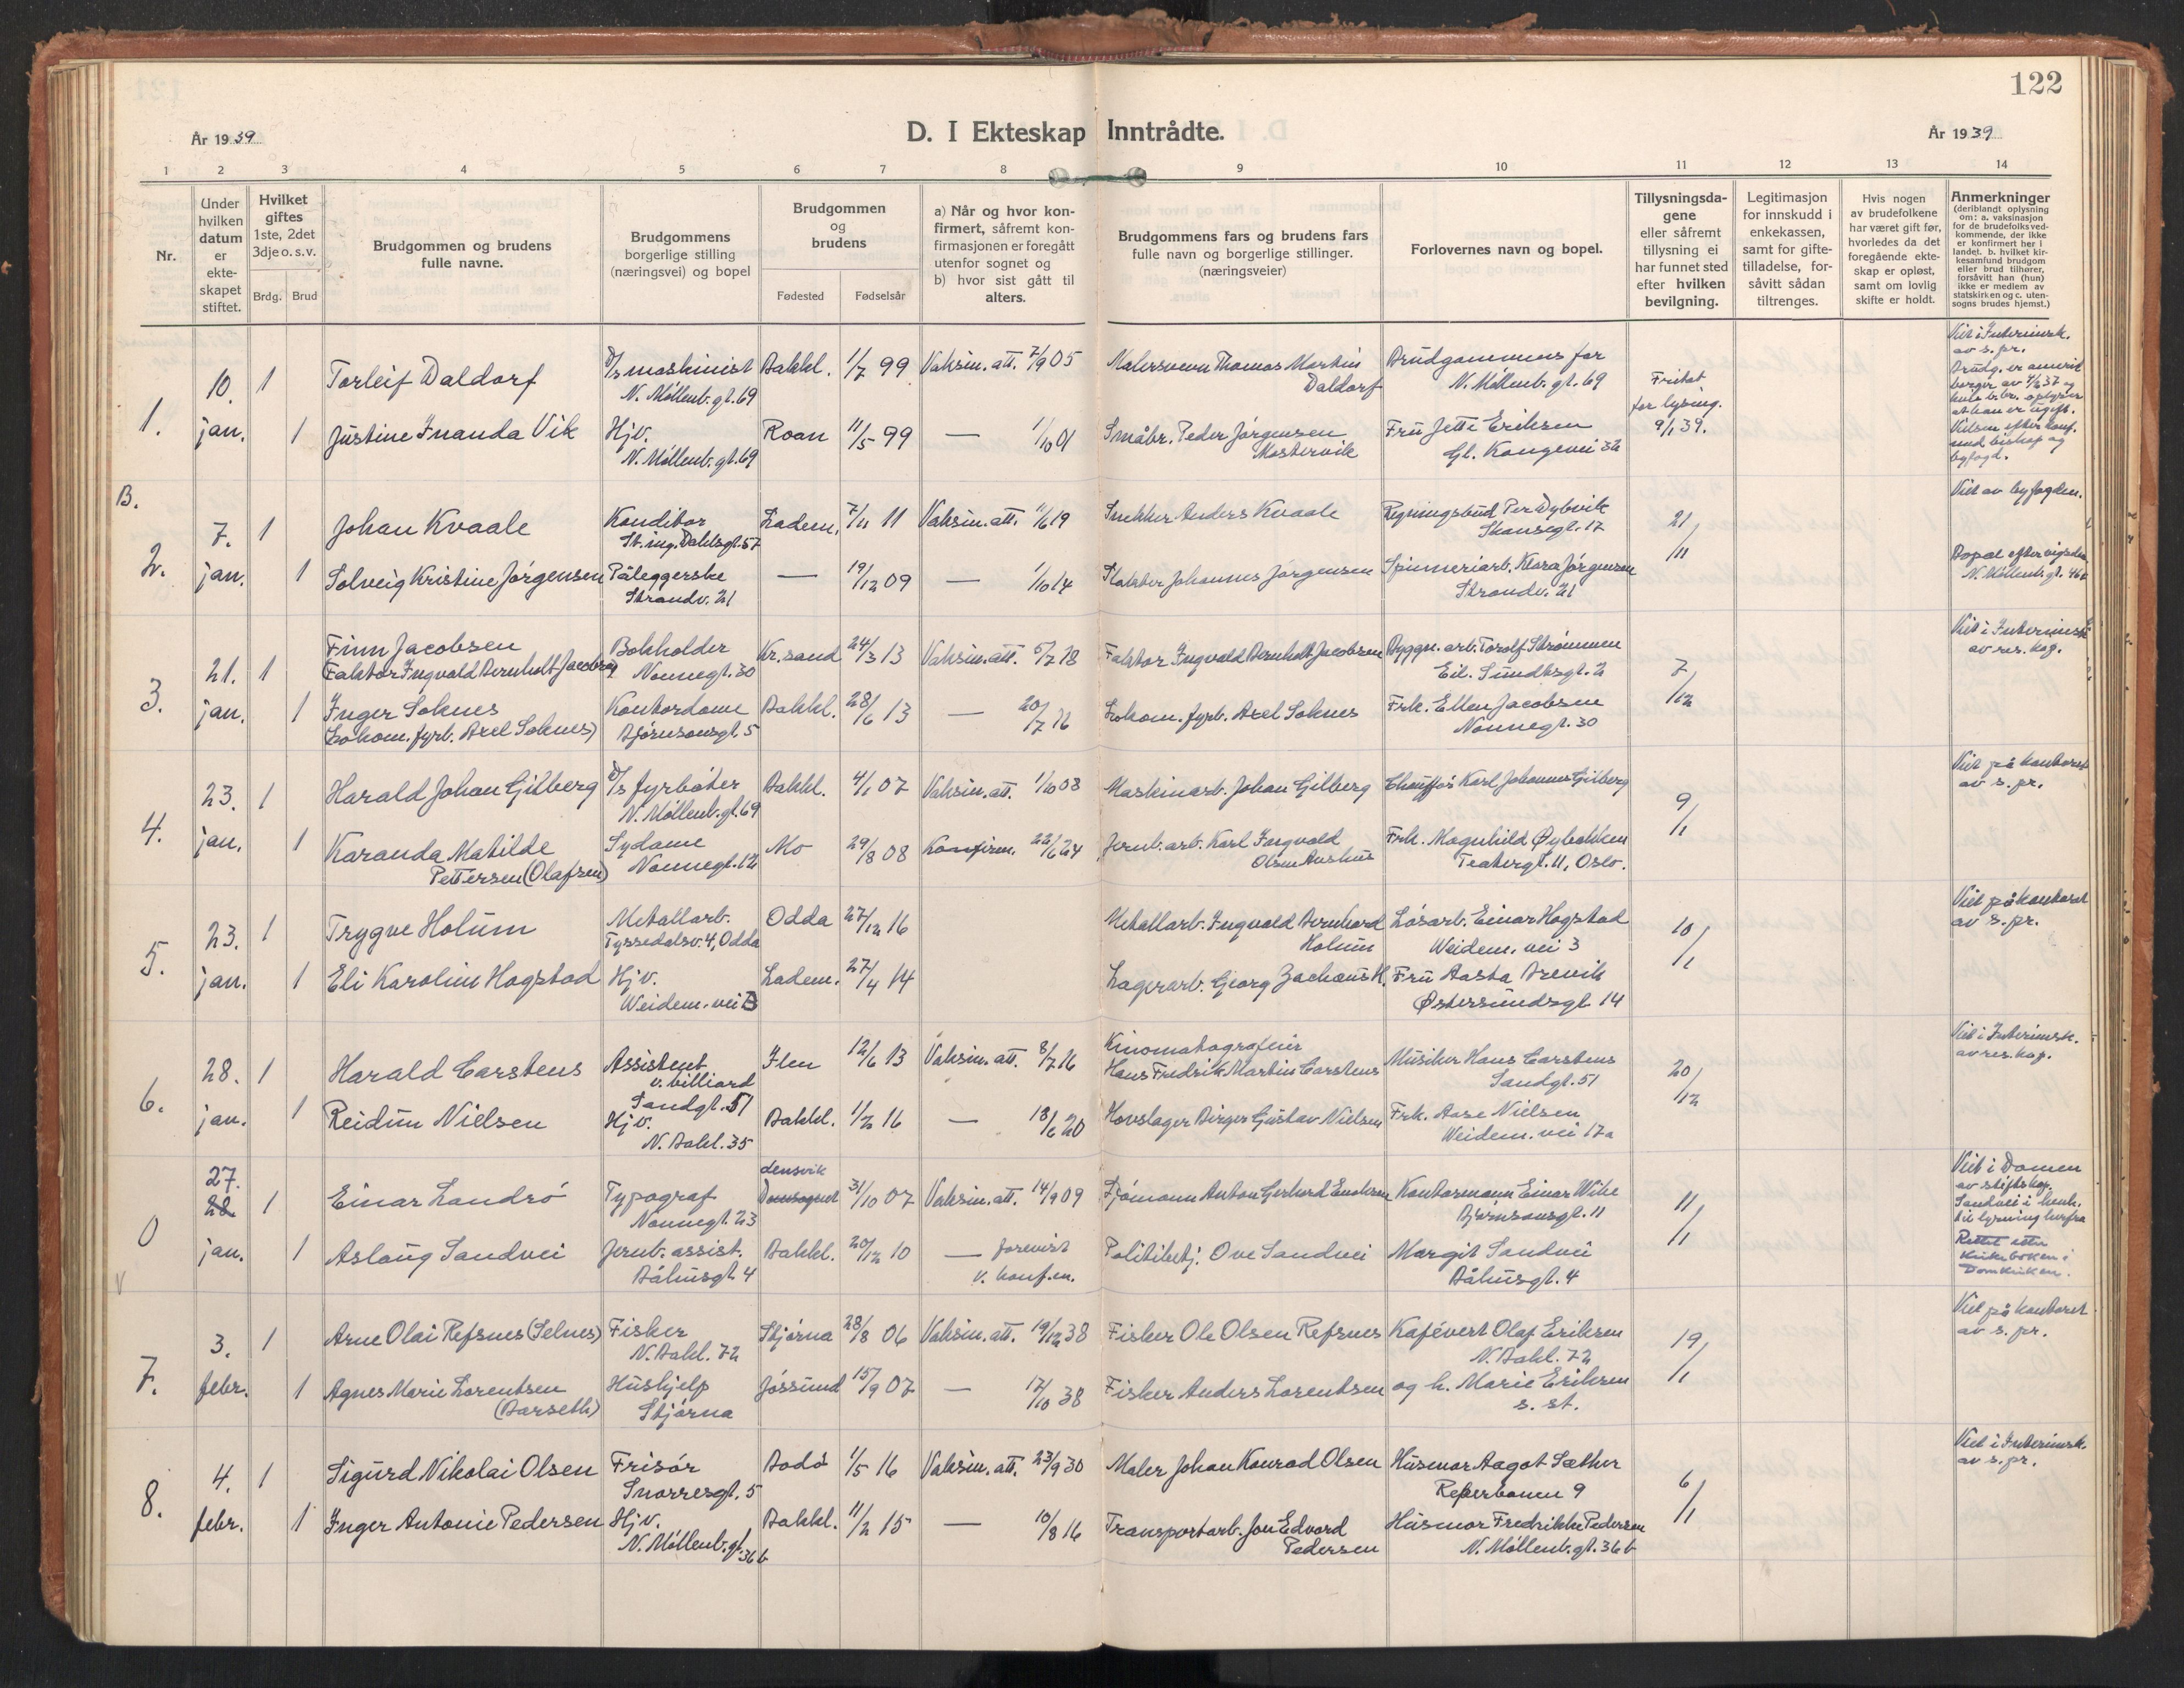 122
År 1939
D. I Ekteskap Inntrådte.
År 1939
1 2 3 4 5 6 7 8 9 10 11 12 13 14
Nr.
Under hvilken datum er ekte-skapet stiftet.
Hvilket giftes 1ste, 2det 3dje o.s.v.
Brdg. Brud
Brudgommen og brudens fulle navne.
Brudgommens borgerlige stilling (næringsvei) og bopel
Brudgommen og brudens
Fødested Fødselsår
a) Når og hvor kon-firmert, såfremt kon-firmasjonen er foregått utenfor sognet og b) hvor sist gått til alters.
Brudgommens fars og brudens fars fulle navn og borgerlige stillinger. (næringsveier)
Forlovernes navn og bopel.
Tillysningsda-gene eller såfremt tillysning ei har funnet sted efter hvilken bevilgning.
Legitimasjon for innskudd i enkekassen, samt for gifte-tilladelse, for-såvitt sådan tiltrenges.
Hvis nogen av brudefolkene har været gift før, hvorledes da det foregående ekte-skap er opløst, samt om lovlig skifte er holdt.
Anmerkninger (deriblandt oplysning om: a. vaksinasjon for de brudefolksved-kommende, der ikke er konfirmert her i landet. b. hvilket kir-kesamfund brudgom eller brud tilhører, forsåvitt han (hun) ikke er medlem av statskirken og c. uten-sogns brudes hjemst.)
1. 10. jan. 1 Torleif Daldorf D/s maskinist N. Møllenb. gt. 69 Bakkl. 1/7 99 Vaksin. att. 7/9 05 Malersvenn Thomas Martin Daldorf Brudgommens far N. Møllenb. gt. 69 Fritat for lysing. 9/1 39. Viet i Interimsk. av s. pr.
Brudg. er amerik. borger av
at han er ugift.
Vielsen efter konf. med biskop og byfogd.
1 Justine Inanda Vik Hjv. N. Møllenb. gt. 69 Roan 11/5 99 — 1/10 01 Småbr. Peder Jørgensen Mostervik Fru Jette Eriksen Gl. Kongevei 32
B.
2. 7. jan. 1 Johan Kvaale Konditor St. ing. Dahlsgt. 57 Ladem. 7/11 11 Vaksin. att. 11/6 19 Snekker Anders Kvaale Regningsbud Per Dybvik Skansegt. 17 21/11 Viet av byfogden.
1 Solveig Kristine Jørgensen Påleggerske Strandv. 21 — 19/12 09 — 1/10 14 Johannes Jørgensen Spinneriarb. Klara Jørgensen Strandv. 21 Bopæl efter vigselen N. Møllenb. gt. 46b
3. 21. jan. 1 Finn Jacobsen (Faktor Ingvald Bernholt Jacobsen) Bokholder Nonnegt. 30 Kr.sand 24/3 13 Vaksin. att. 5/7 18 Faktor Ingvald Bernholt Jacobsen Byggn. arb. Torolf Strømmen Eil. Sundtsgt. 2 7/12 Viet i Interimsk. av res. kap.
1 Inger Soknes (Lokom. fyrb. Axel Soknes) Kontordame Bjørnsonsgt. 5 Bakkl. 28/6 13 — 20/7 16 Lokom. fyrb. Axel Soknes Frk. Ellen Jacobsen Nonnegt. 30
4. 23. jan. 1 Harald Johan Gilberg D/s fyrbøter N. Møllenb. gt. 69 Bakkl. 4/1 07 Vaksin. att. 1/10 08 Maskinarb. Johan Gilberg Chauffør Karl Johannes Gilberg 9/1 Viet på kontoret av s. pr.
1 Karanda Matilde Pettersen (Olafsen) Sydame Nonnegt. 12 Mo 29/8 08 Konfirm. 22/6 24 Jernb. arb. Karl Ingvald Olsen Aushus Frk. Magnhild Øybakken Teatergt. 11, Oslo.
5. 23. jan. 1 Trygve Holum Metallarb. Tyssedalsv. 4, Odda Odda 27/12 16 Metallarb. Ingvald Bernhard Holum Løsarb. Einar Hogstad Weidem. vei 3 10/1 Viet på kontoret av s. pr.
1 Eli Karolin Hogstad Hjv. Weidem. vei 3 Ladem. 27/4 14 Lagerarb. Georg Zachæus H. Fru Aasta Brevik Østersundsgt. 14
6. 28. jan. 1 Harald Carstens Assistent v. billiard Sandgt. 51 Ilen 12/6 13 Vaksin. att. 8/7 16 Kinomatografeier Hans Fredrik Martin Carstens Musiker Hans Carstens Sandgt. 51 20/12 Viet i Interimsk. av res. kap.
1 Reidun Nielsen Hjv. N. Bakl. 35 Bakkl. 1/2 16 — 18/6 20 Hovslager Birger Gustav Nielsen Frk. Aase Nielsen Weidem. vei 17a
0 27. 28. jan. 1 Einar Landrø Typograf Nonnegt. 23 densvik 31/10 07 Vaksin. att. 14/9 09 Sjømann Anton Gerhard Kontormann Einar Wike Bjørnsonsgt. 11 11/1 Viet i Domen av stiftskap. Sandvei i henh. til lysning herfra
Rettet etter kirkeboken i Domkirken.
v 1 Aslaug Sandvei Jernb. assist. Båhusgt. 4 Bakkl. 20/12 10 — forevist v. konf.en. Politibetj. Ove Sandvei Margit Sandvei Båhusgt. 4
7. 3. febr. 1 Arne Olai Refsnes (Selnes) Fisker N. Bakl. 72 Stjørna 28/8 06 Vaksin. att. 19/12 38 Fisker Ole Olsen Refsnes Kafévert Olaf Eriksen N. Bakl. 72 19/1 Viet på kontoret av s. pr.
1 Agnes Marie Lorentsen (Barseth) Hushjelp Stjørna Jøssund 15/9 07 — 17/10 38 Fisker Anders Lorentsen og h. Marie Eriksen s. st.
8. 4. febr. 1 Sigurd Nikolai Olsen Frisør Snorresgt. 5 Bodø 1/5 16 Vaksin. att. 23/9 30 Maler Johan Konrad Olsen Husmor Aagot Sæther Reperbanen 9 6/1 Viet i Interimsk. av s. pr.
1 Inger Antonie Pedersen Hjv. N. Møllenb. gt. 36 b Bakkl. 11/2 15 — 10/8 16 Transportarb. Jon Edvard Pedersen Husmor Fredrikke Pedersen N. Møllenb. gt. 36 b